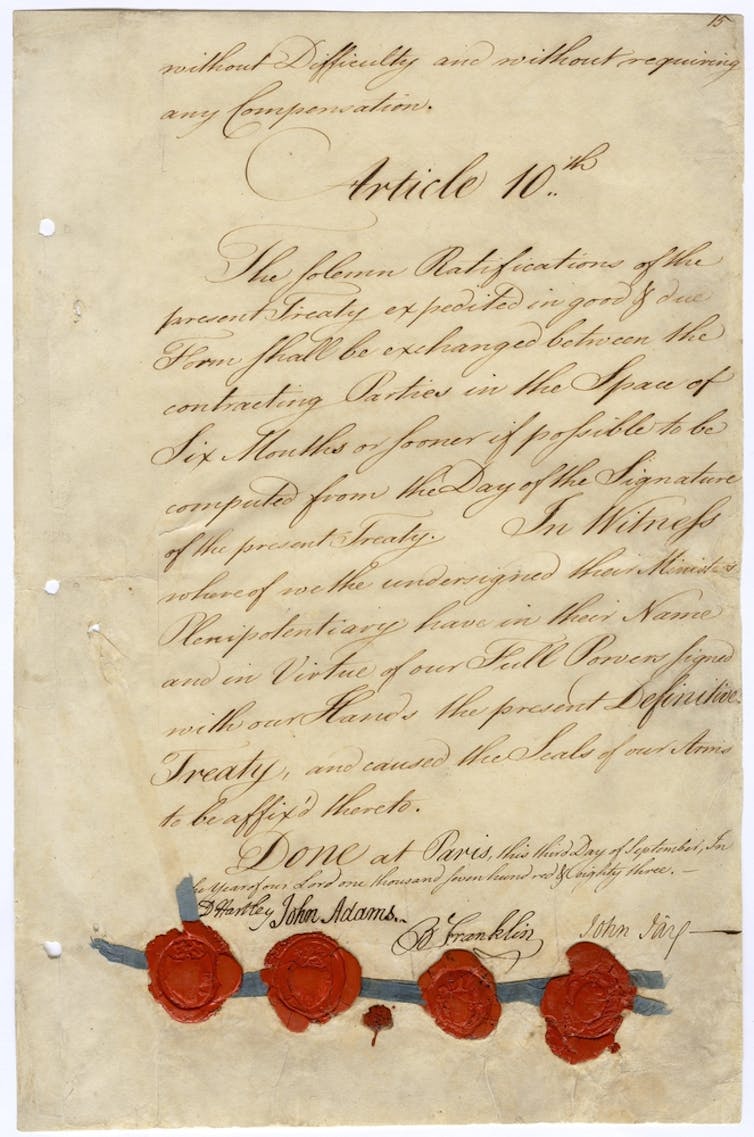 15
without Difficulty and without requiring
any Compensation.
Article 10.th
The solemn Ratifications of the
present Treaty expedited in good & due
Form shall be exchanged between the
contracting Parties in the Space of
Six Months or sooner if possible to be
computed from the Day of the Signature
of the present Treaty. In Witness
whereof we the undersigned their Ministers
Plenipotentiary have in their Name
and in Virtue of our Full Powers signed
with our Hands the present Definitive
Treaty, and caused the Seals of our Arms
to be affix'd thereto.
Done at Paris, this third Day of September, In
he Year of our Lord one thousand seven hundred & eighty three.—
D Hartley John Adams. B Franklin John Jay—